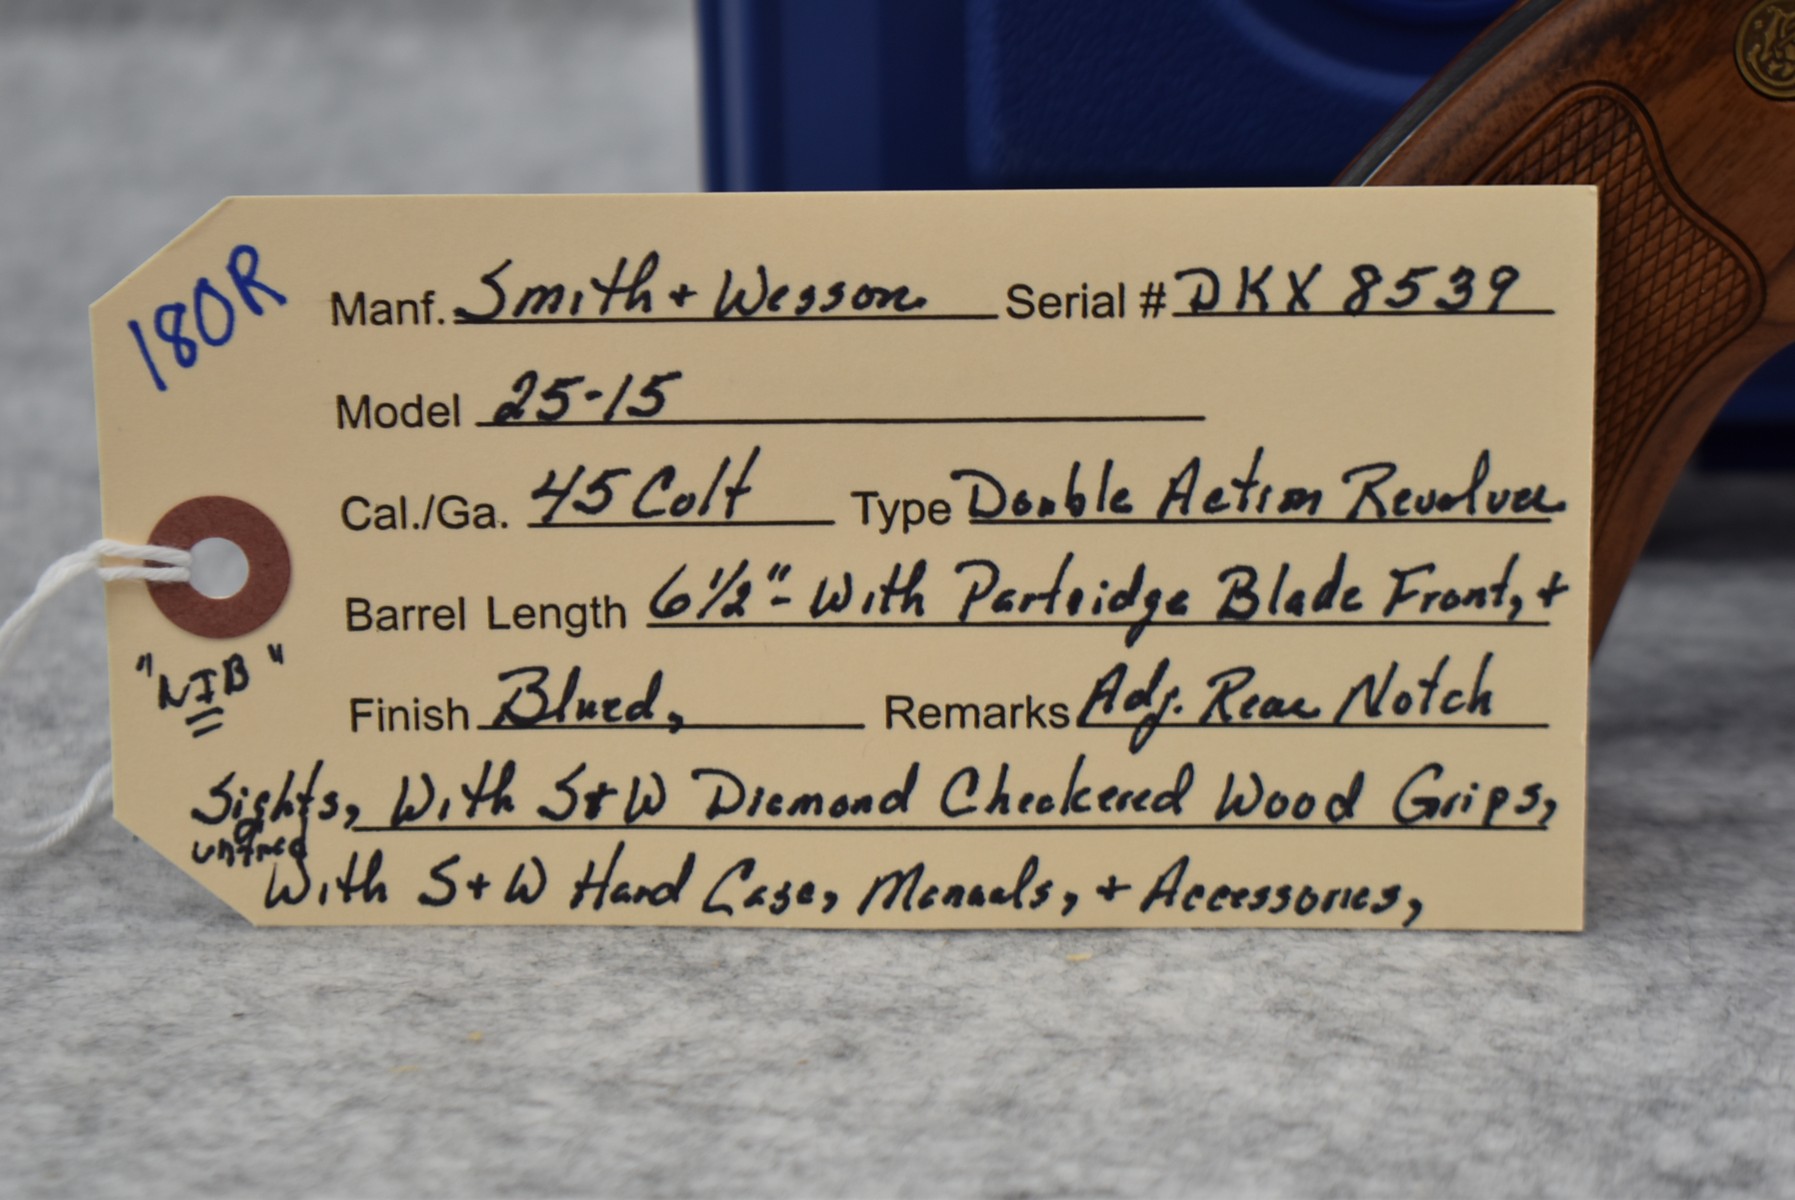 180R
Manf. Smith + Wesson Serial # DKX 8539
Model 25-15
Cal./Ga. 45 Colt Type Double Action Revolver
Barrel Length 6 1/2" - With Partridge Blade Front, +
"NIB"
Finish Blued, Remarks Adj. Rear Notch
Sights, With S+W Diamond Checkered Wood Grips,
unfired
With S+W Hard Case, Manuals, + Accessories,